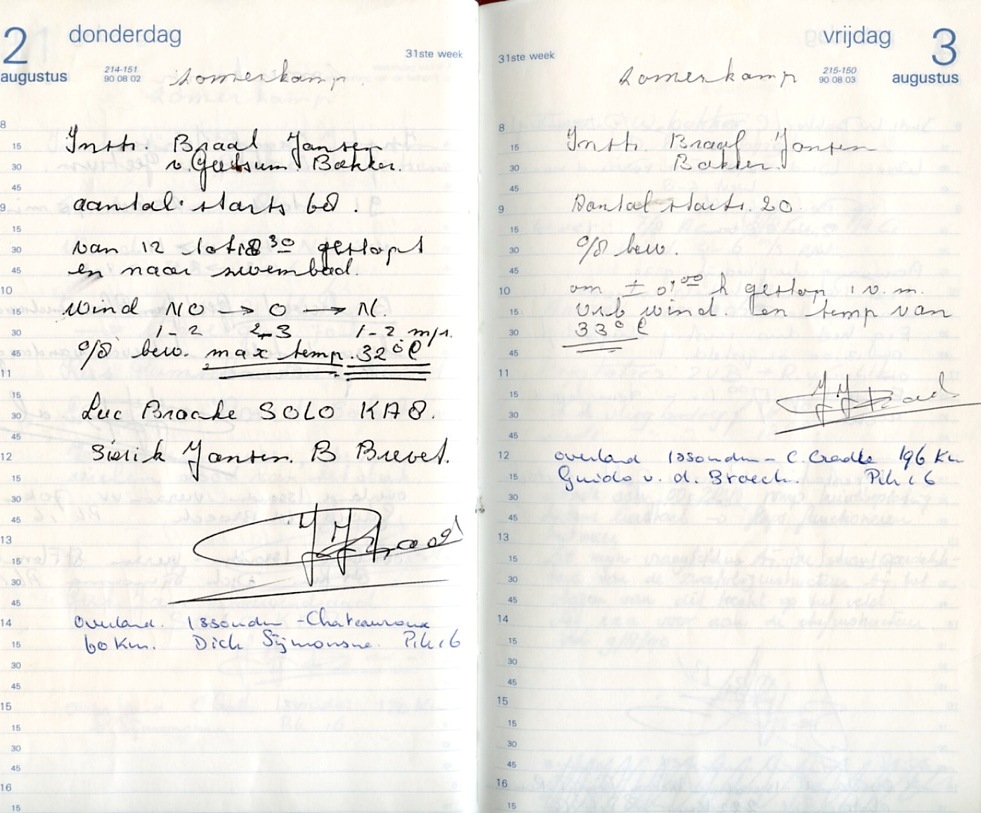 2 donderdag
augustus
214-151
90 08 02
31ste week
Zomerkamp.
8
Instr. Braaf Jansen
15
v. Geetsum. Bakker.
30
45
9
aantal starts 68.
15
30
van 12 tot 18 30 gestopt
45
en naar zwembad.
10
Wind NO → O → N.
15
30
1-2 2-3 1-2 m/s.
45
9/8 bew. max temp. 32°C
11
15
30
Luc Braake SOLO KA8.
45
12
Sierik Jansen. B Brevet.
15
30
45
13
15
30
45
14
overland. Issoudun - Chateauroux
15
60 Km. Dick Sijmonsma. Pik 16
30
45
15
15
30
45
16
15
31ste week
vrijdag 3
215-150
90 08 03
augustus
Zomerkamp
8
15
Instr. Braaf Jansen
30
Bakker.
45
9
Aantal starts. 20
15
30
9/8 bew.
45
10
om ± 01 00 h gestop i.v.m.
15
wind. en temp van
30
33° C
45
11
15
30
45
12
overland Issoudun - C. 196 Km
15
Guido v. d. Broech. Pik 16
30
45
13
15
30
45
14
15
30
45
15
15
30
45
16
15